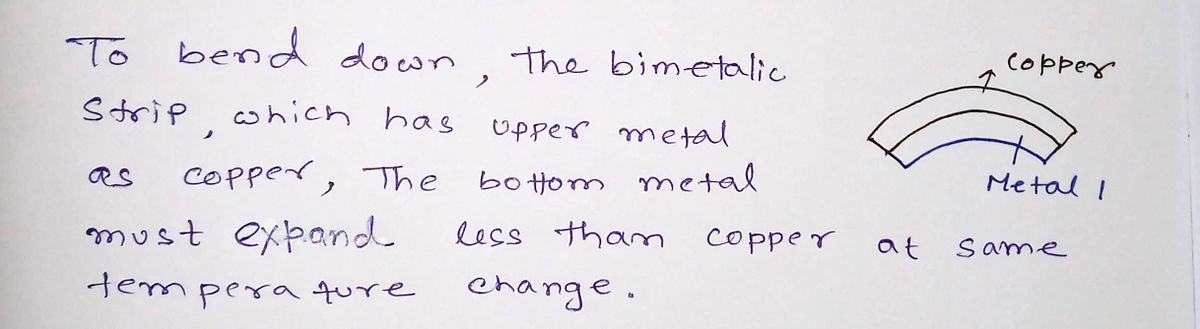 To bend down, the bimetalic
copper
Strip, which has upper metal
as copper, The bottom metal
Metal 1
must expand less than copper at same
temperature change.